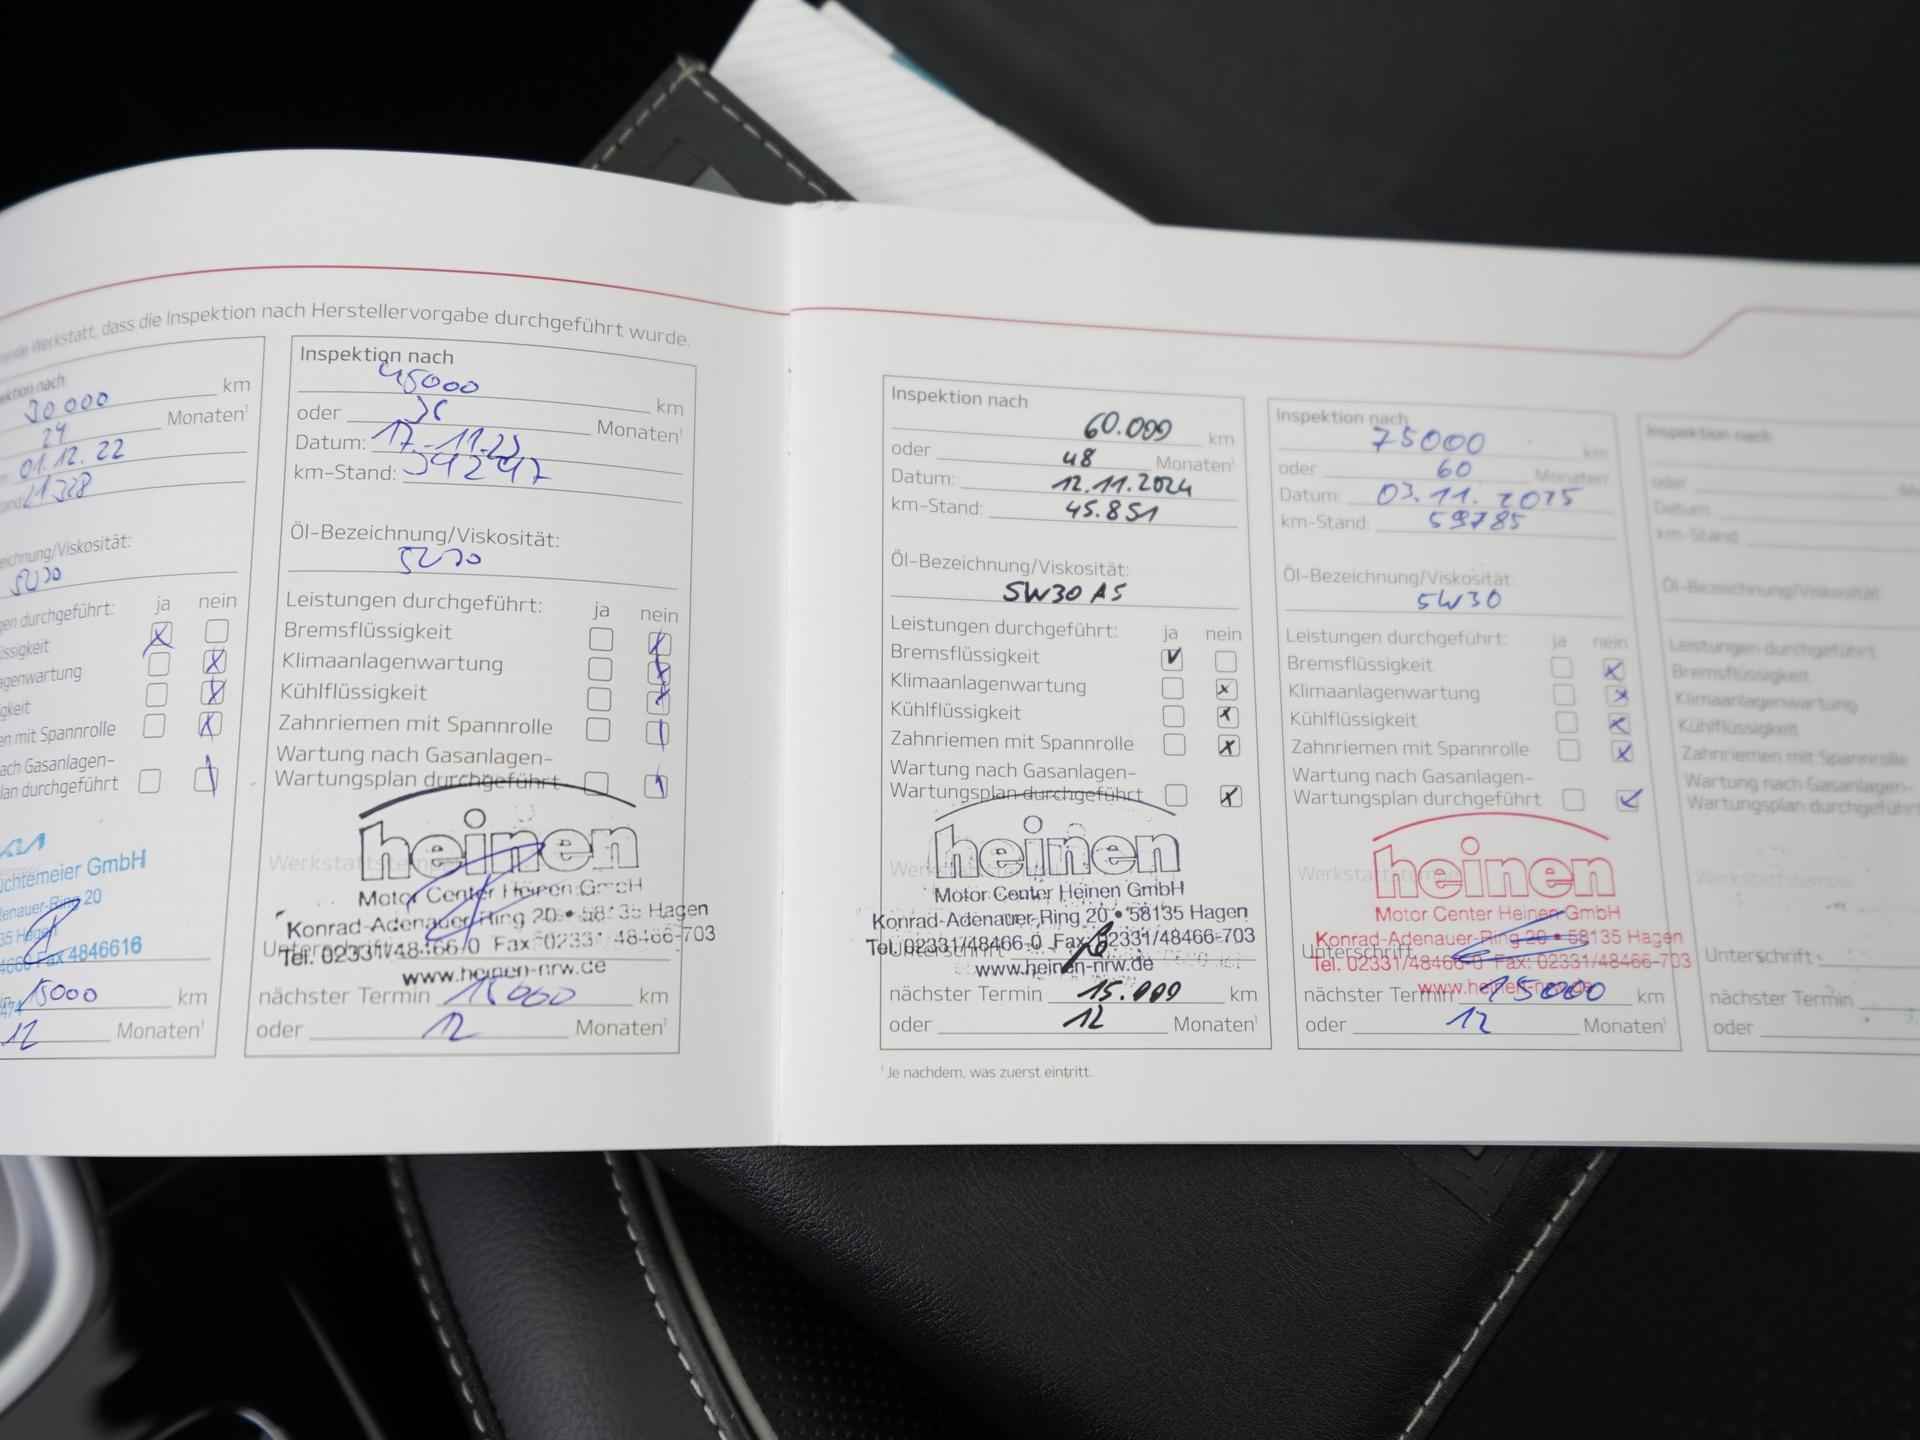 Werkstatt, dass die Inspektion nach Herstellervorgabe durchgeführt wurde.
30 000 km
24 Monaten¹
01.12.22
21328
5W30
ja nein
gen durchgeführt:
ssigkeit
agenwartung
gkeit
en mit Spannrolle
ach Gasanlagen-
lan durchgeführt
üchtemeier GmbH
denauer-Ring 20
35 Hagen
Fax 4846616
15000 km
12 Monaten¹
Inspektion nach
45000 km
oder 36 Monaten¹
Datum: 17.-11.23
km-Stand: 34247
Öl-Bezeichnung/Viskosität:
5W30
Leistungen durchgeführt: ja nein
Bremsflüssigkeit
Klimaanlagenwartung
Kühlflüssigkeit
Zahnriemen mit Spannrolle
Wartung nach Gasanlagen-
Wartungsplan durchgeführt
heinen
Motor Center Heinen GmbH
Konrad-Adenauer-Ring 20 • 58135 Hagen
Unterschrift
Tel. 02331/48466-0 Fax: 02331/48466-703
www.heinen-nrw.de
nächster Termin 15000 km
oder 12 Monaten¹
Inspektion nach
60.000 km
oder 48 Monaten¹
Datum: 12.11.2024
km-Stand: 45.851
Öl-Bezeichnung/Viskosität:
5W30 A5
Leistungen durchgeführt: ja nein
Bremsflüssigkeit
Klimaanlagenwartung
Kühlflüssigkeit
Zahnriemen mit Spannrolle
Wartung nach Gasanlagen-
Wartungsplan durchgeführt
heinen
Motor Center Heinen GmbH
Konrad-Adenauer-Ring 20 • 58135 Hagen
Unterschrift
Tel. 02331/48466-0 Fax: 02331/48466-703
www.heinen-nrw.de
nächster Termin 15.000 km
oder 12 Monaten¹
¹ Je nachdem, was zuerst eintritt.
Inspektion nach
75000 km
oder 60 Monaten¹
Datum: 03.11.2025
km-Stand: 59785
Öl-Bezeichnung/Viskosität:
5W30
Leistungen durchgeführt: ja nein
Bremsflüssigkeit
Klimaanlagenwartung
Kühlflüssigkeit
Zahnriemen mit Spannrolle
Wartung nach Gasanlagen-
Wartungsplan durchgeführt
heinen
Motor Center Heinen GmbH
Konrad-Adenauer-Ring 20 • 58135 Hagen
Unterschrift
Tel. 02331/48466-0 Fax: 02331/48466-703
www.heinen-nrw.de
nächster Termin 15000 km
oder 12 Monaten¹
Inspektion nach
oder
Datum:
km-Stand:
Öl-Bezeichnung/Viskosität:
Leistungen durchgeführt:
Bremsflüssigkeit
Klimaanlagenwartung
Kühlflüssigkeit
Zahnriemen mit Spannrolle
Wartung nach Gasanlagen-
Wartungsplan durchgeführt
Werkstattstempel
Unterschrift:
nächster Termin
oder